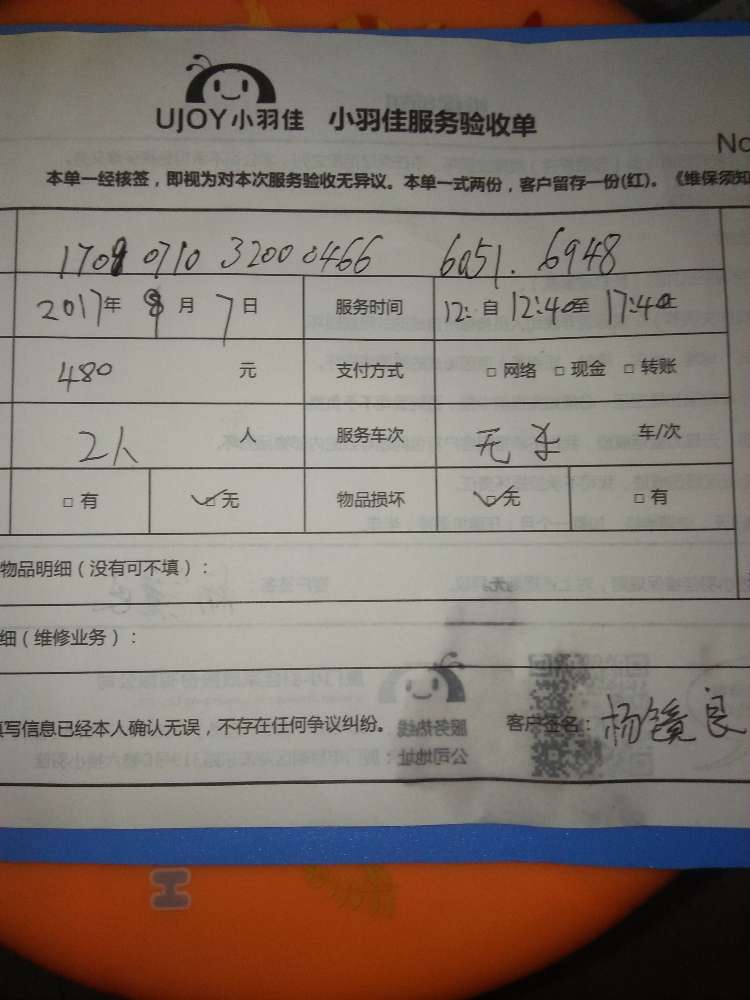 UJOY小羽佳 小羽佳服务验收单
No
本单一经核签，即视为对本次服务验收无异议。本单一式两份，客户留存一份(红)。《维保须知
1708 0710 3200 0466 6051. 6948
2017年 8月 7日 服务时间 12: 自 12:40至 17:40止
480 元 支付方式 □ 网络 □ 现金 □ 转账
2人 人 服务车次 无车 车/次
□ 有 □ 无 物品损坏 □ 无 □ 有
物品明细（没有可不填）：
细（维修业务）：
填写信息已经本人确认无误，不存在任何争议纠纷。 客户签名：杨镜良